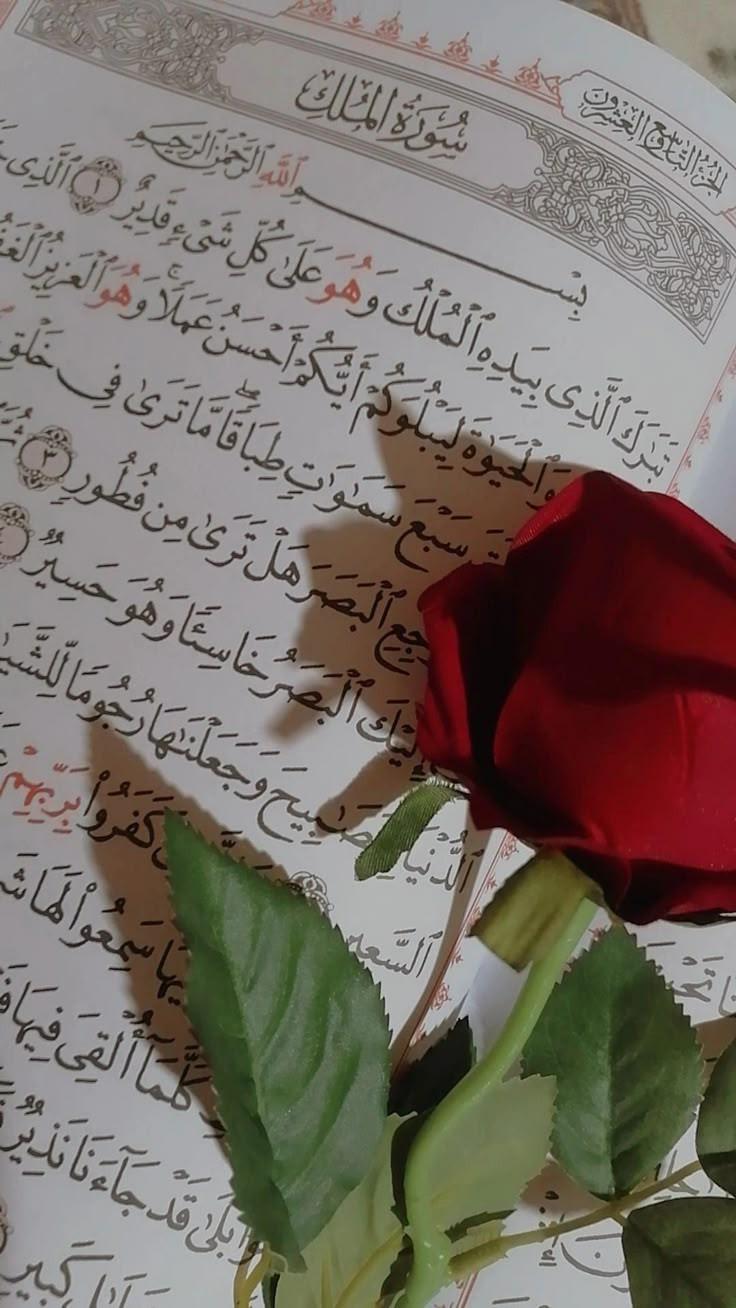 الجزء التاسع العشرون
سورة الملك
بسم الله الرحمن الرحيم
تَبَٰرَكَ ٱلَّذِى بِيَدِهِ ٱلْمُلْكُ وَهُوَ عَلَىٰ كُلِّ شَىْءٍ قَدِيرٌ ١ ٱلَّذِى
وَٱلْحَيَوٰةَ لِيَبْلُوَكُمْ أَيُّكُمْ أَحْسَنُ عَمَلًا ۚ وَهُوَ ٱلْعَزِيزُ
سَبْعَ سَمَٰوَٰتٍ طِبَاقًا ۖ مَّا تَرَىٰ فِى خَلْقِ
ٱلْبَصَرَ هَلْ تَرَىٰ مِن فُطُورٍ ٣
إِلَيْكَ ٱلْبَصَرُ خَاسِئًا وَهُوَ حَسِيرٌ
ٱلدُّنْيَا وَجَعَلْنَٰهَا رُجُومًا
ٱلسَّعِيرِ كَفَرُوا۟ بِرَبِّهِمْ
سَمِعُوا۟ لَهَا
كُلَّمَآ أُلْقِىَ فِيهَا
بَلَىٰ قَدْ جَآءَنَا نَذِيرٌ
كَبِيرٍ